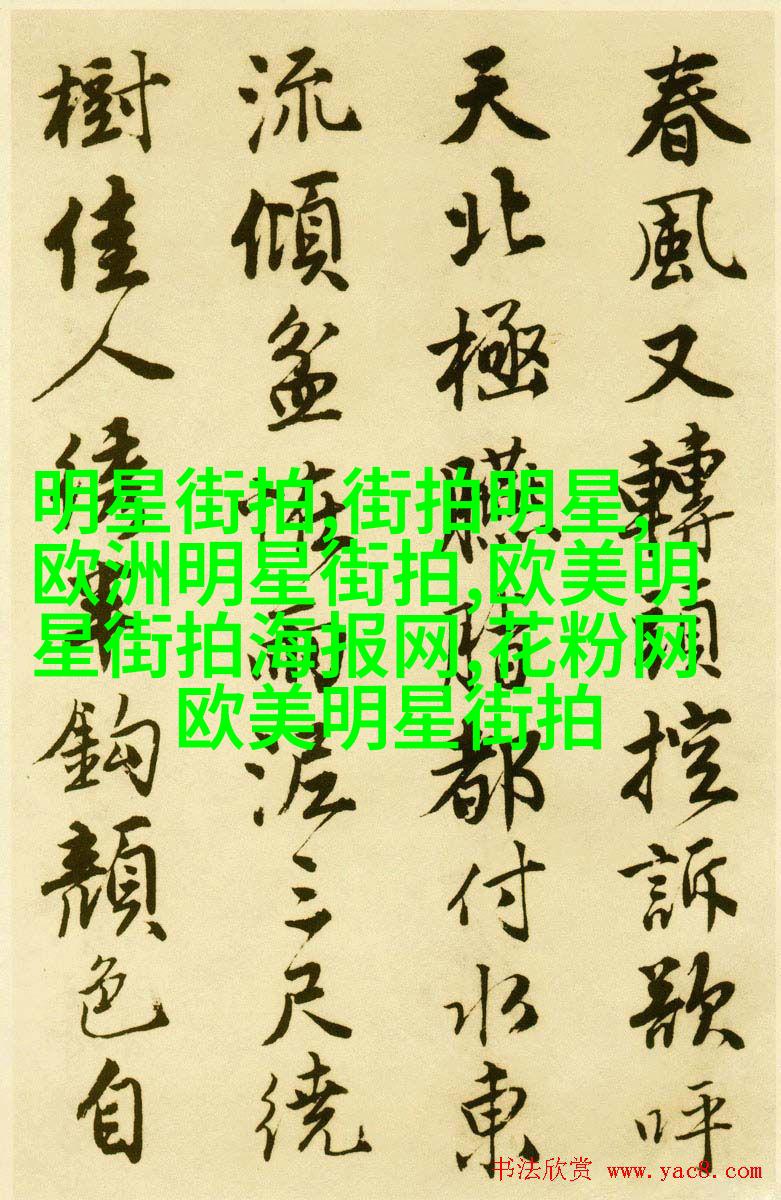 春風又轉頭控訴欲呼
天北極臙脂都付水東
流傾盆怪雨泥三尺繞
樹佳人繡半鈎顏色自
明星街拍,街拍明星,
欧洲明星街拍,欧美明
星街拍海报网,花粉网
欧美明星街拍
书法欣赏 www.yac8.com